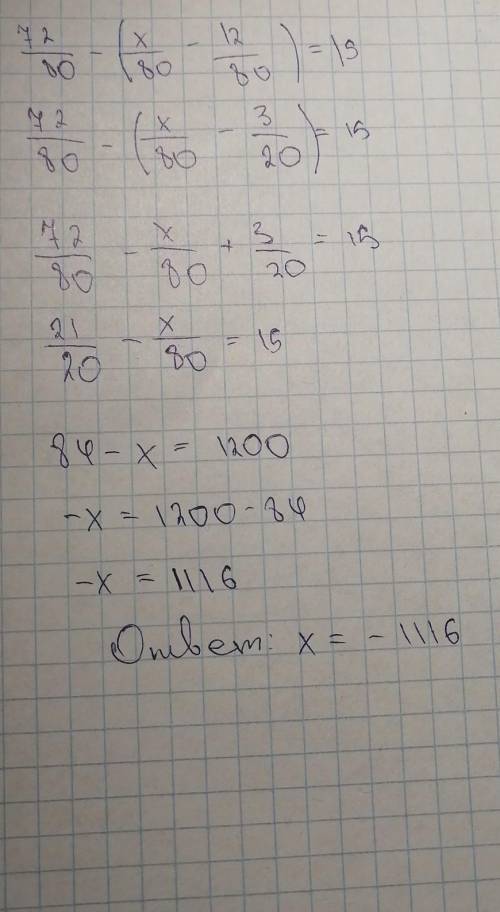 72/80 - (x/80 - 12/80) = 15
72/80 - (x/80 - 3/20) = 15
72/80 - x/80 + 3/20 = 15
21/20 - x/80 = 15
84 - x = 1200
-x = 1200 - 84
-x = 1116
Ответ: x = -1116